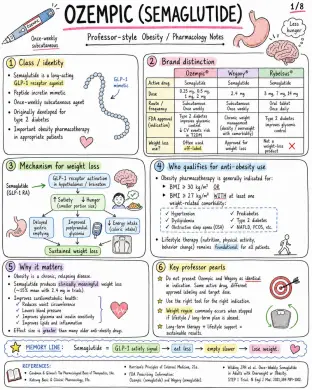 OZEMPIC (SEMAGLUTIDE)
1/8
Once-weekly
subcutaneous
Professor-style Obesity / Pharmacology Notes
Less
hunger
1 Class / identity
Semaglutide is a long-acting
GLP-1 receptor agonist
Peptide incretin mimetic
Once-weekly subcutaneous agent
Originally developed for
type 2 diabetes
Important obesity pharmacotherapy
in appropriate patients
GLP-1
mimetic
2 Brand distinction
Ozempic® Wegovy® Rybelsus®
Active drug Semaglutide Semaglutide Semaglutide
Dose 0.25 mg, 0.5 mg,
1 mg, 2 mg 2.4 mg 3 mg, 7 mg, 14 mg
Route / frequency Subcutaneous
Once weekly Subcutaneous
Once weekly Oral tablet
Once daily
FDA approval
(indication) Type 2 diabetes
improve glycemic
control
↓ CV events risk
in T2DM Chronic weight
management
(obesity / overweight
with comorbidity) Type 2 diabetes
improve glycemic
control
Weight loss use? Often used
off-label Approved for
weight loss Not a
weight-loss
product
3 Mechanism for weight loss
Semaglutide
(GLP-1 RA)
GLP-1 receptor activation
in hypothalamus / brainstem
↑ Satiety ↓ Hunger
(smaller portion size)
Delayed
gastric
emptying
Improved
postprandial
glycemia
↓ Energy intake
(caloric intake)
Sustained weight loss
4 Who qualifies for anti-obesity use
Obesity pharmacotherapy is generally indicated for:
BMI ≥ 30 kg/m² OR
BMI ≥ 27 kg/m² WITH at least one
weight-related comorbidity:
✓ Hypertension ✓ Prediabetes
✓ Dyslipidemia ✓ Type 2 diabetes
✓ Obstructive sleep apnea (OSA) ✓ NAFLD, PCOS, etc.
Lifestyle therapy (nutrition, physical activity,
behavior change) remains foundational for all patients.
5 Why it matters
Obesity is a chronic, relapsing disease.
Semaglutide produces clinically meaningful weight loss
(~15% mean with 2.4 mg in trials).
Improves cardiometabolic health:
✓ Reduces waist circumference
✓ Lowers blood pressure
✓ Improves glycemia and insulin sensitivity
✓ Improves lipids and inflammation
Effect size is greater than many older anti-obesity drugs.
6 Key professor pearls
Do not present Ozempic and Wegovy as identical
in indication. Same active drug, different
approved labeling and target dose.
Use the right tool for the right indication.
Weight regain commonly occurs when stopped
if lifestyle / long-term plan is absent.
Long-term therapy + lifestyle support =
sustainable results.
MEMORY LINE: Semaglutide = GLP-1 satiety signal → eat less → empty slower → lose weight.
REFERENCES: